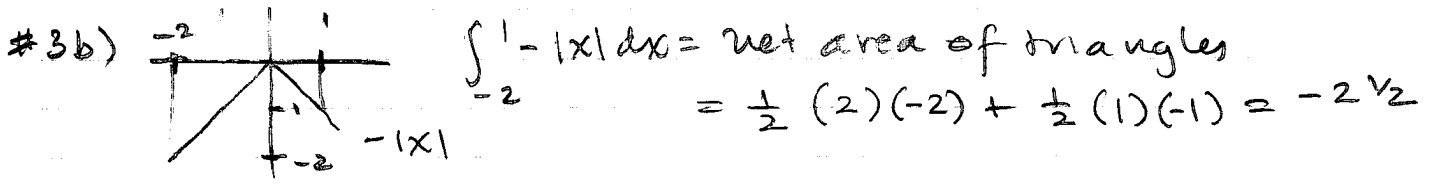 #3b) -2 1 ∫₋₂¹ -|x| dx = net area of triangles
-1 = ½ (2)(-2) + ½ (1)(-1) = -2 ½
-|x|
-2